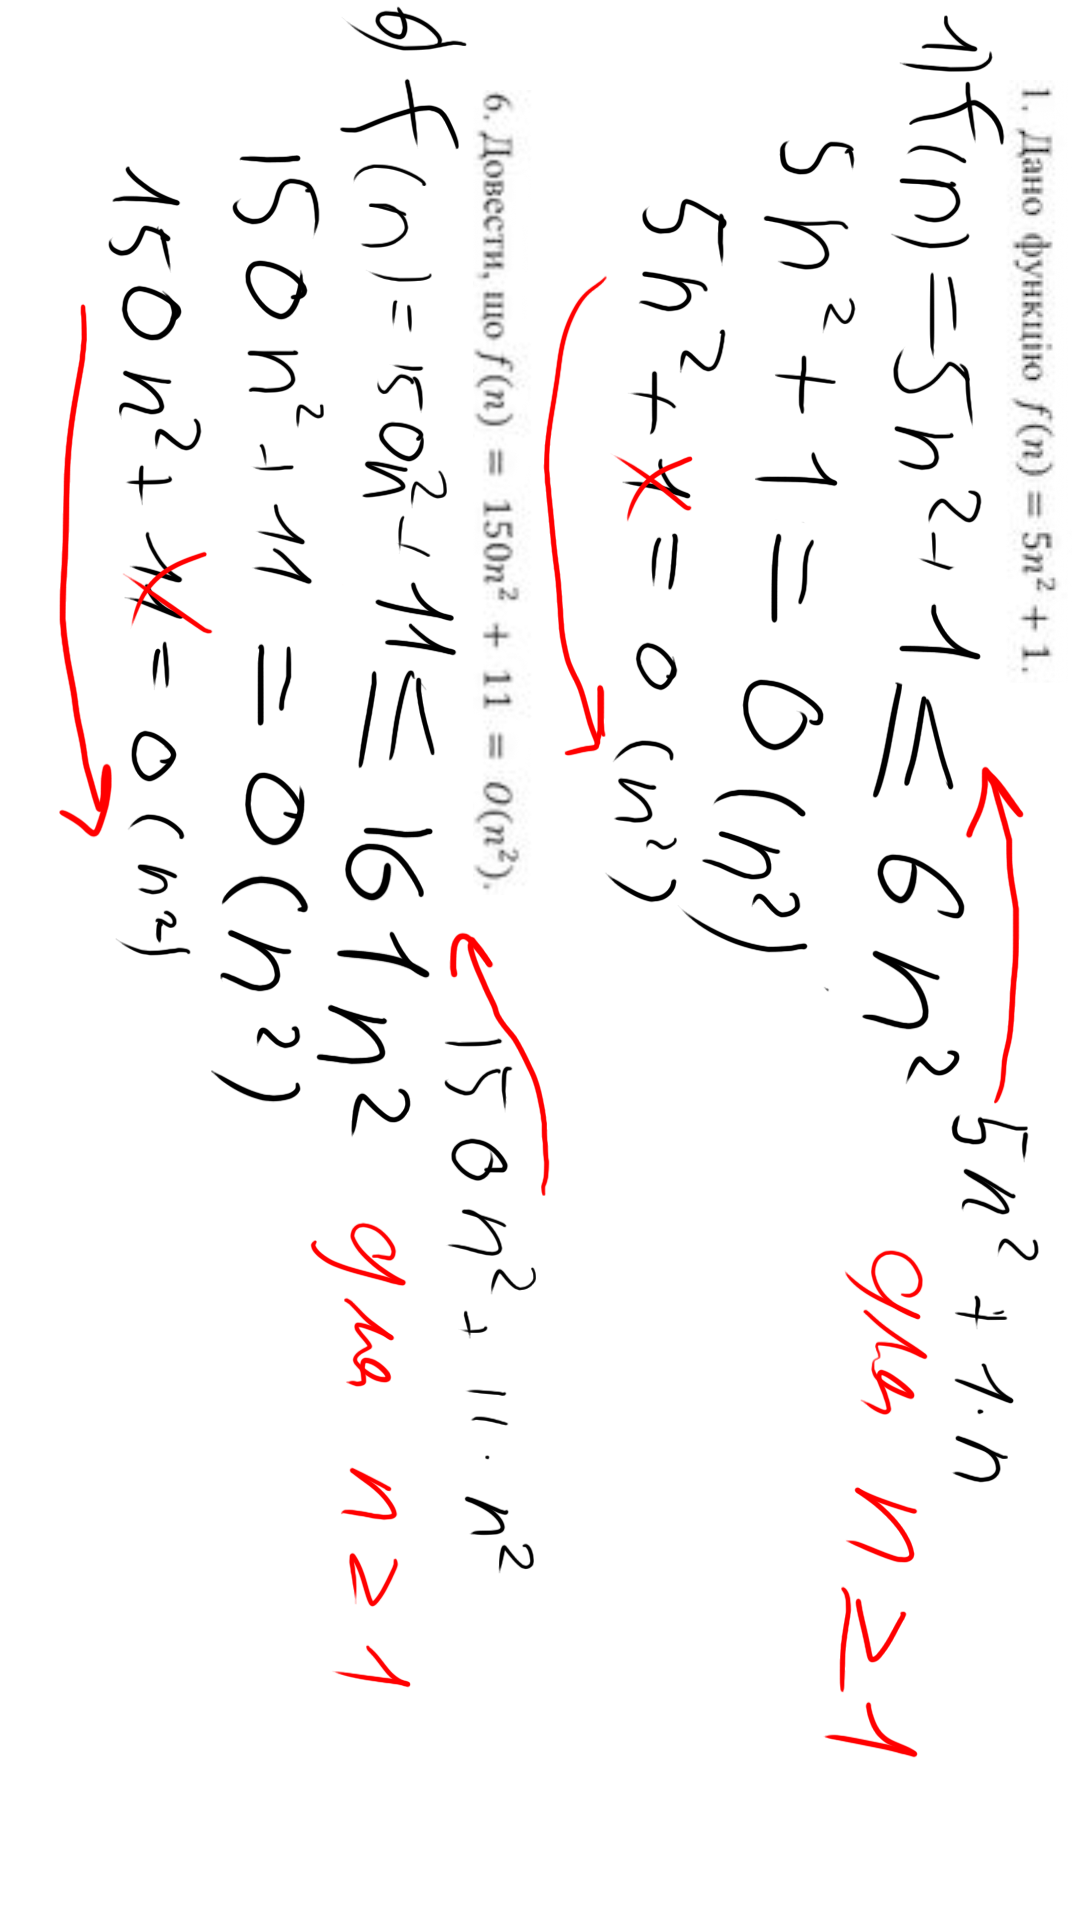 1. Дано функцію f(n) = 5n² + 1.
1) f(n) = 5n² + 1 ≤ 6n²
5n² + 1·n
для n ≥ 1
5n² + 1 = O(n²)
5n² + 1 = O(n²)
6. Довести, що f(n) = 150n² + 11 = O(n²).
150n² + 11·n²
6) f(n) = 150n² + 11 ≤ 161n²
для n ≥ 1
150n² + 11 = O(n²)
150n² + 11 = O(n²)